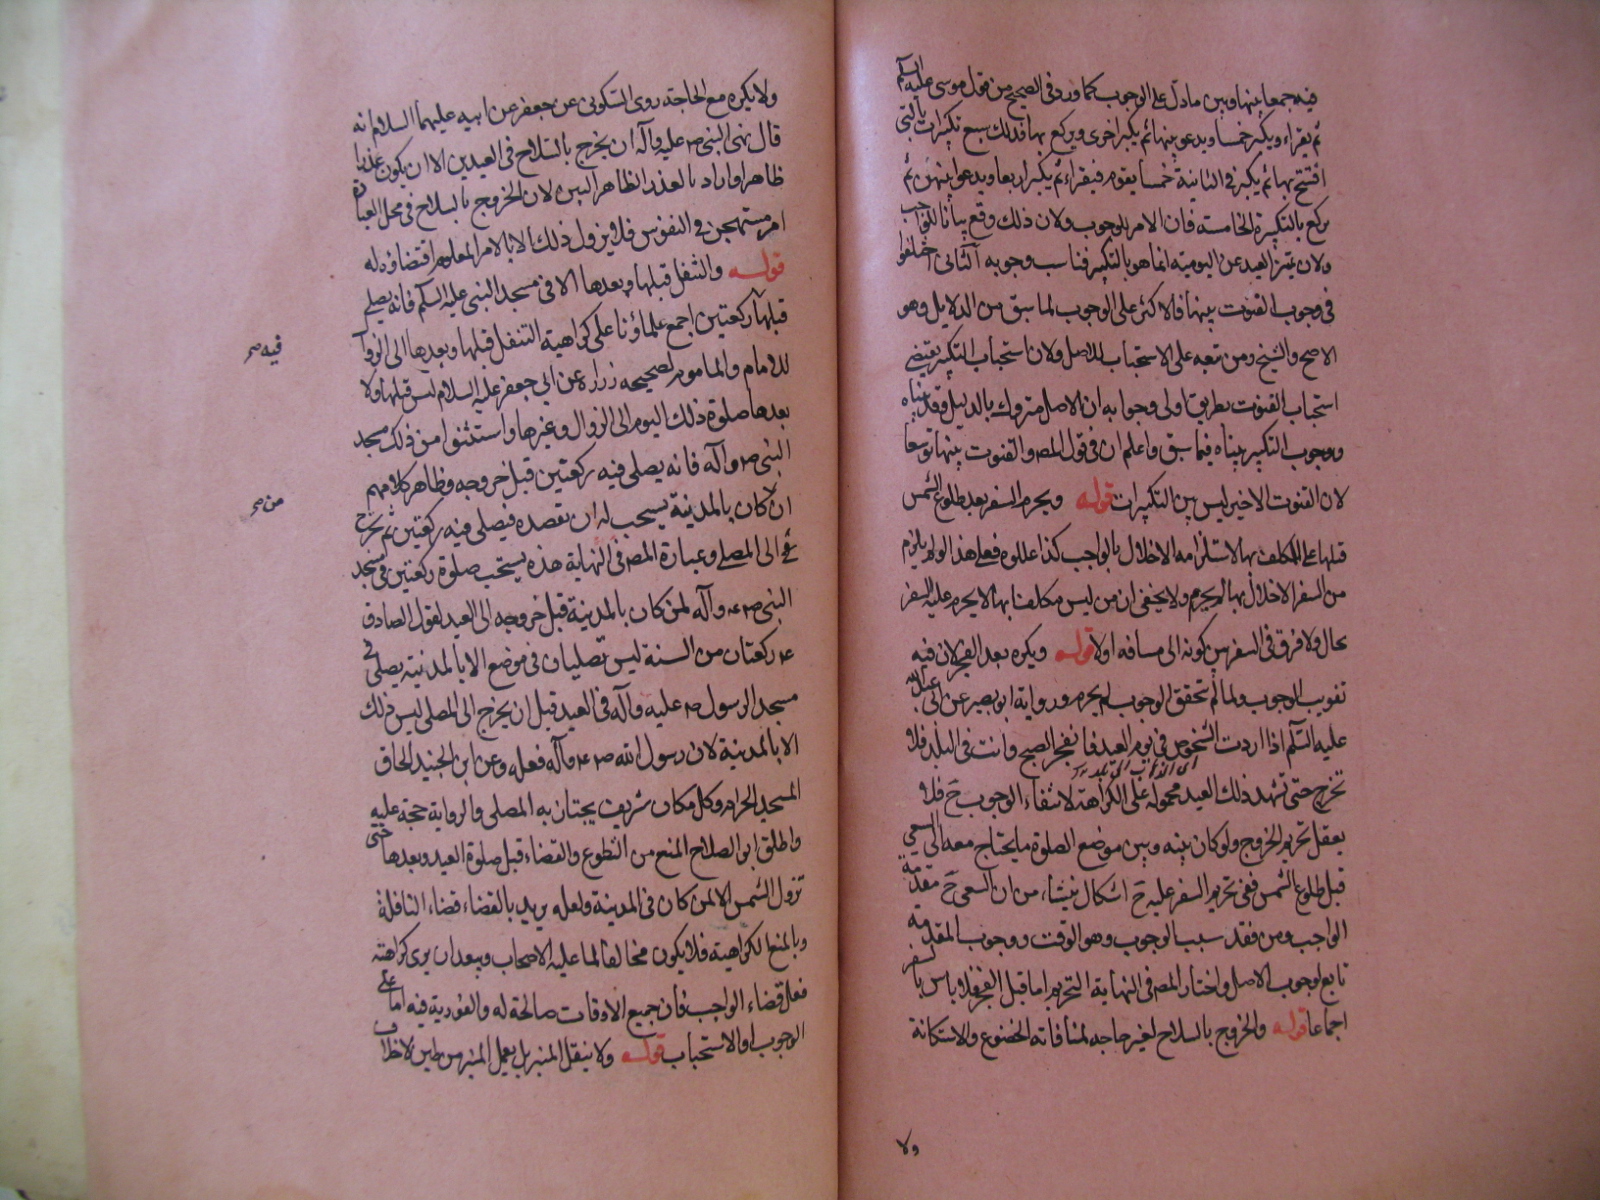 فيه جمعا بينها وبين ما دل على الوجوب كما ورد في الصحيح من قول موسى عليه السلم
ثم يقراء ويكبر خمسا ويدعو بينها ثم يكبر اخرى ويركع بها فذلك سبع تكبيرات بالتي
افتتح بها ثم يكبر في الثانية خمسا يقوم فيقراء ثم يكبر اربعا ويدعو بينهن ثم
يركع بالتكبيرة الخامسة فان الامر للوجوب ولان ذلك وقع بيانا للواجب
ولان تميز العيد عن اليومية انما هو بالتكبير فناسب وجوبه آ الثاني اختلفوا
في وجوب القنوت بينها فالاكثر على الوجوب لما سبق من الدلايل وهو
الاصح والشيخ ومن تبعه على الاستحباب للاصل ولان استحباب التكبير يقتضي
استحباب القنوت بطريق اولى وجوابه ان الاصل متروك بالدليل وقد بيناه
ووجوب التكبير بيناه فيما سبق واعلم ان في قول المص والقنوت بينها توسعا
لان القنوت الاخير ليس بين التكبيرات قوله ويحرم السفر بعد طلوع الشمس
قبلها على المكلف بها لاستلزامه الاخلال بالواجب كذا عللوه فعلى هذا لو لم يلزم
من السفر الاخلال بها لم يحرم ولا يخفى ان من ليس مكلفا بها لا يحرم عليه السفر
بحال ولا فرق في السفر بين كونه الى مسافه اولا قوله ويكره بعد الفجر لان فيه
تفويت الوجوب ولما لم يتحقق الوجوب لم يحرم ورواية ابو بصير عن ابي عبد الله
عليه السلم اذا اردت الشخوص في يوم العيد فانفجر الصبح وانت في البلد فلا
تخرج حتى تشهد ذلك العيد محمولة على الكراهة لانتفاء الوجوب ح فلا
يعقل تحريم الخروج ولو كان بينه وبين موضع الصلوة ما يحتاج معه الى السعي
قبل طلوع الشمس ففي تحريم السفر عليه ح اشكال ينشاء من ان السعي ح مقدمة
الواجب ومن فقد سبب الوجوب وهو الوقت ووجوب المقدمة
تابع لوجوب الاصل واختار المص في النهاية التحريم اما قبل الفجر فلا باس بالسفر
اجماعا قوله والخروج بالسلاح لغير حاجه لمنافاته الخضوع والاستكانة
ولا
ولا يكره مع الحاجة روى السكوني عن جعفر عن ابيه عليهما السلام انه
قال نهى النبي ص عليه وآله ان يخرج بالسلاح في العيدين الا ان يكون عذرا
ظاهرا واراد بالعذر الظاهر البين لان الخروج بالسلاح في محل العبادة
امر مستهجن في النفوس فلا يزول ذلك الا بالامر المعلوم اقتضاؤه له
قوله والتنفل قبلها وبعدها الا في مسجد النبي عليه السلم فانه يصلي
قبلها ركعتين اجمع علماؤنا على كراهية التنفل قبلها وبعدها الى الزوال
للامام والماموم لصحيحه زرارة عن ابي جعفر عليه السلام ليس قبلها ولا
فيه صح
بعدها صلوة ذلك اليوم الى الزوال وغيرها واستثنوا من ذلك مسجد
النبي ص وآله فانه يصلى فيه ركعتين قبل خروجه وظاهر كلامهم
ان كان بالمدينة يستحب له ان يقصده فيصلي فيه ركعتين ثم يخرج
من صح
الى المصلى وعبارة المص في النهاية هذه يستحب صلوة ركعتين في مسجد
النبي ص ع وآله لمن كان بالمدينة قبل خروجه الى العيد لقول الصادق
ع ركعتان من السنة ليس تصليان في موضع الا بالمدينة يصلي في
مسجد الرسول ص عليه وآله في العيد قبل ان يخرج الى المصلى ليس ذلك
الا بالمدينة لان رسول الله ص ع وآله فعله وعن ابن الجنيد الحاق
المسجد الحرام وكل مكان شريف يجتاز به المصلي والرواية حجة عليه
واطلق ابو الصلاح المنع من التطوع والقضاء قبل صلوة العيد وبعدها حتى
تزول الشمس الا لمن كان في المدينة ولعله يريد بالقضاء قضاء النافلة
وبالمنع الكراهية فلا يكون مخالفا لما عليه الاصحاب ويبعد ان يرى كراهة
فعل قضاء الواجب فان جميع الاوقات صالحة له والفورية فيه اما على
الوجوب او الاستحباب قوله ولا ينقل المنبر بل يعمل المنبر من طين لا خلاف